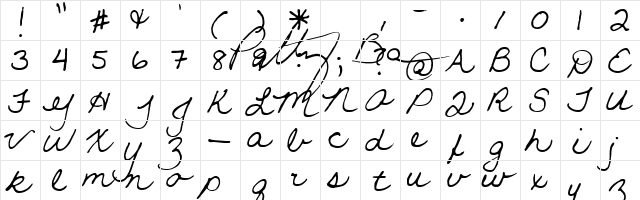 ! " # & ' ( ) * , - . / 0 1 2
3 4 5 6 7 8 9 : ; ? @ A B C D E
F G H I J K L M N O P Q R S T U
V W X Y Z _ a b c d e f g h i j
k l m n o p q r s t u v w x y z